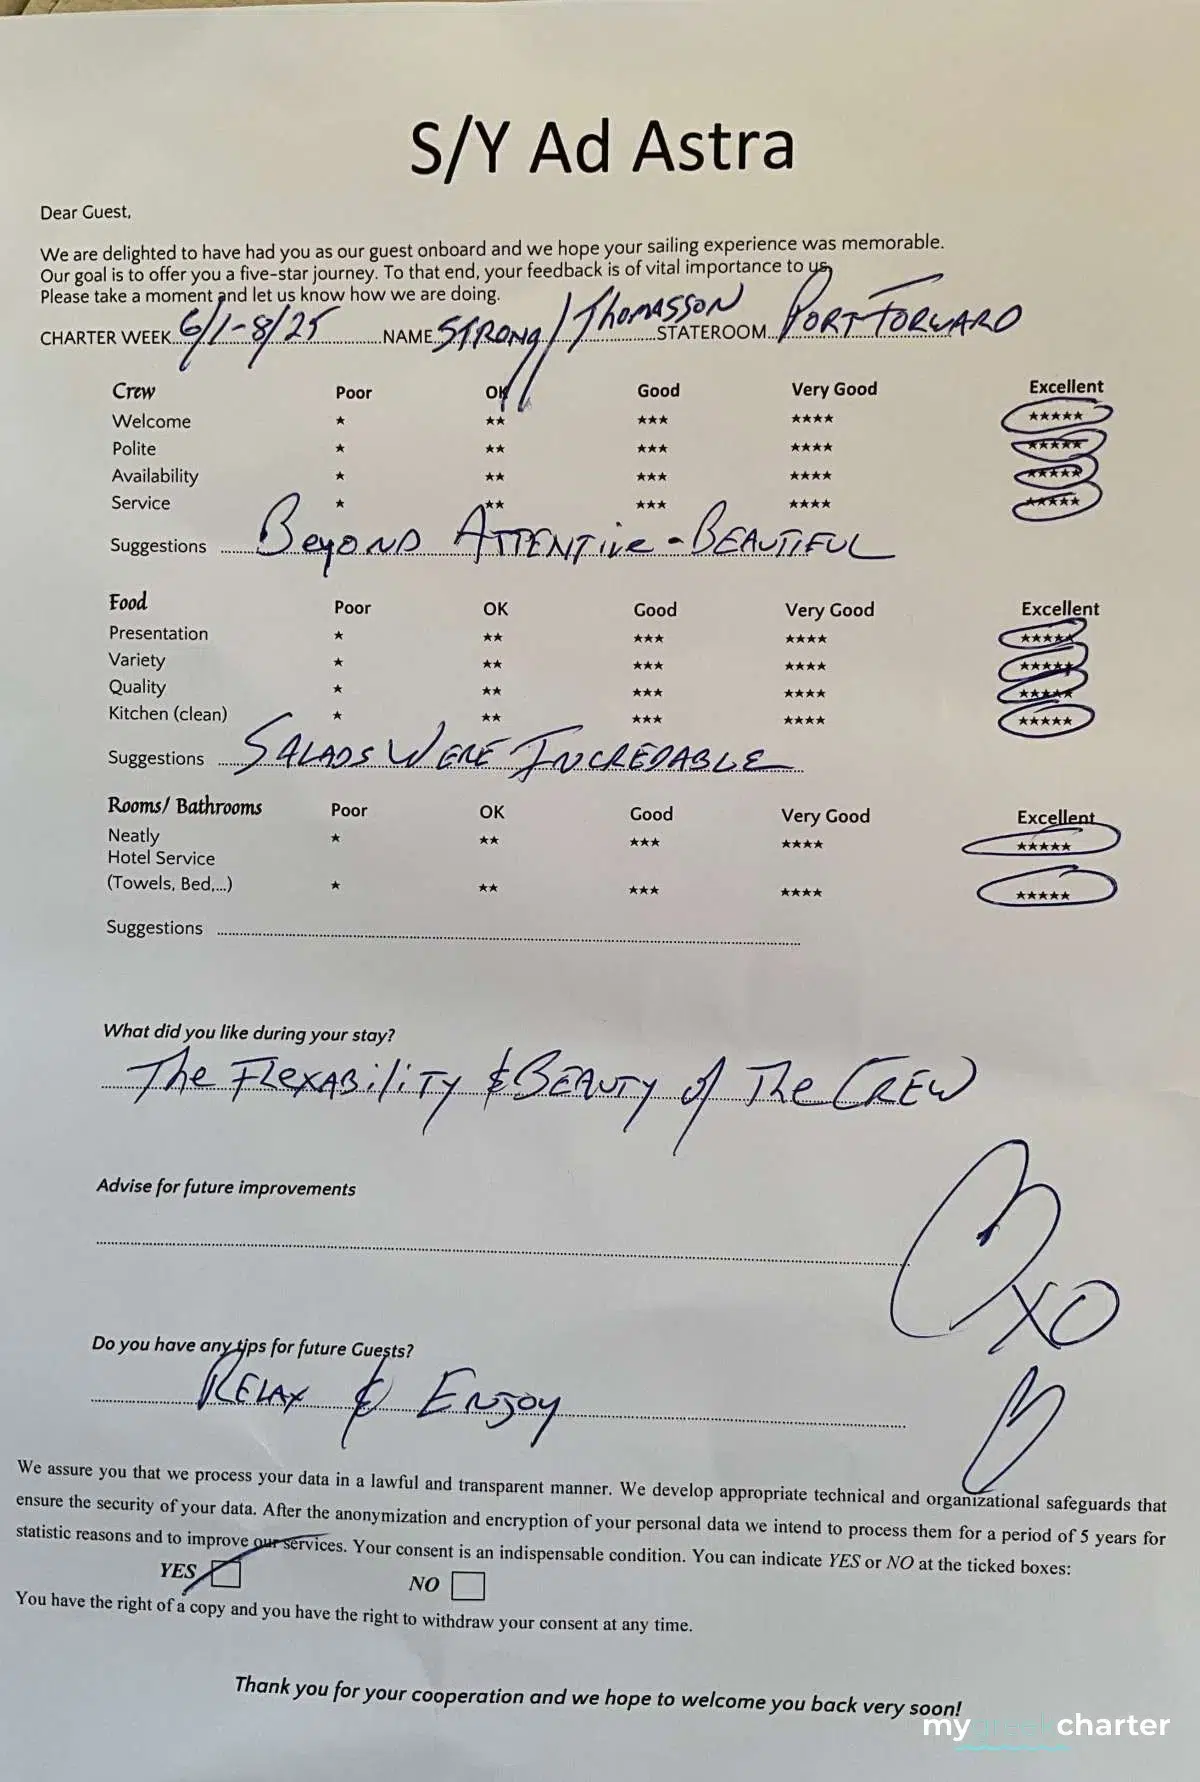 S/Y Ad Astra
Dear Guest,
We are delighted to have had you as our guest onboard and we hope your sailing experience was memorable.
Our goal is to offer you a five-star journey. To that end, your feedback is of vital importance to us.
Please take a moment and let us know how we are doing.
CHARTER WEEK 6/1-8/25 NAME STRONG/THOMASSON STATEROOM PORT FORWARD
Crew Poor OK Good Very Good Excellent
Welcome ★ ★★ ★★★ ★★★★ ★★★★★
Polite ★ ★★ ★★★ ★★★★ ★★★★★
Availability ★ ★★ ★★★ ★★★★ ★★★★★
Service ★ ★★ ★★★ ★★★★ ★★★★★
Suggestions BEYOND ATTENTIVE - BEAUTIFUL
Food Poor OK Good Very Good Excellent
Presentation ★ ★★ ★★★ ★★★★ ★★★★★
Variety ★ ★★ ★★★ ★★★★ ★★★★★
Quality ★ ★★ ★★★ ★★★★ ★★★★★
Kitchen (clean) ★ ★★ ★★★ ★★★★ ★★★★★
Suggestions SALADS WERE INCREDABLE
Rooms/ Bathrooms Poor OK Good Very Good Excellent
Neatly ★ ★★ ★★★ ★★★★ ★★★★★
Hotel Service
(Towels, Bed,...) ★ ★★ ★★★ ★★★★ ★★★★★
Suggestions
What did you like during your stay?
THE FLEXABILITY & BEAUTY of THE CREW
Advise for future improvements
XO
Do you have any tips for future Guests?
RELAX & ENJOY
We assure you that we process your data in a lawful and transparent manner. We develop appropriate technical and organizational safeguards that
ensure the security of your data. After the anonymization and encryption of your personal data we intend to process them for a period of 5 years for
statistic reasons and to improve our services. Your consent is an indispensable condition. You can indicate YES or NO at the ticked boxes:
YES NO
You have the right of a copy and you have the right to withdraw your consent at any time.
Thank you for your cooperation and we hope to welcome you back very soon!
mygreekcharter